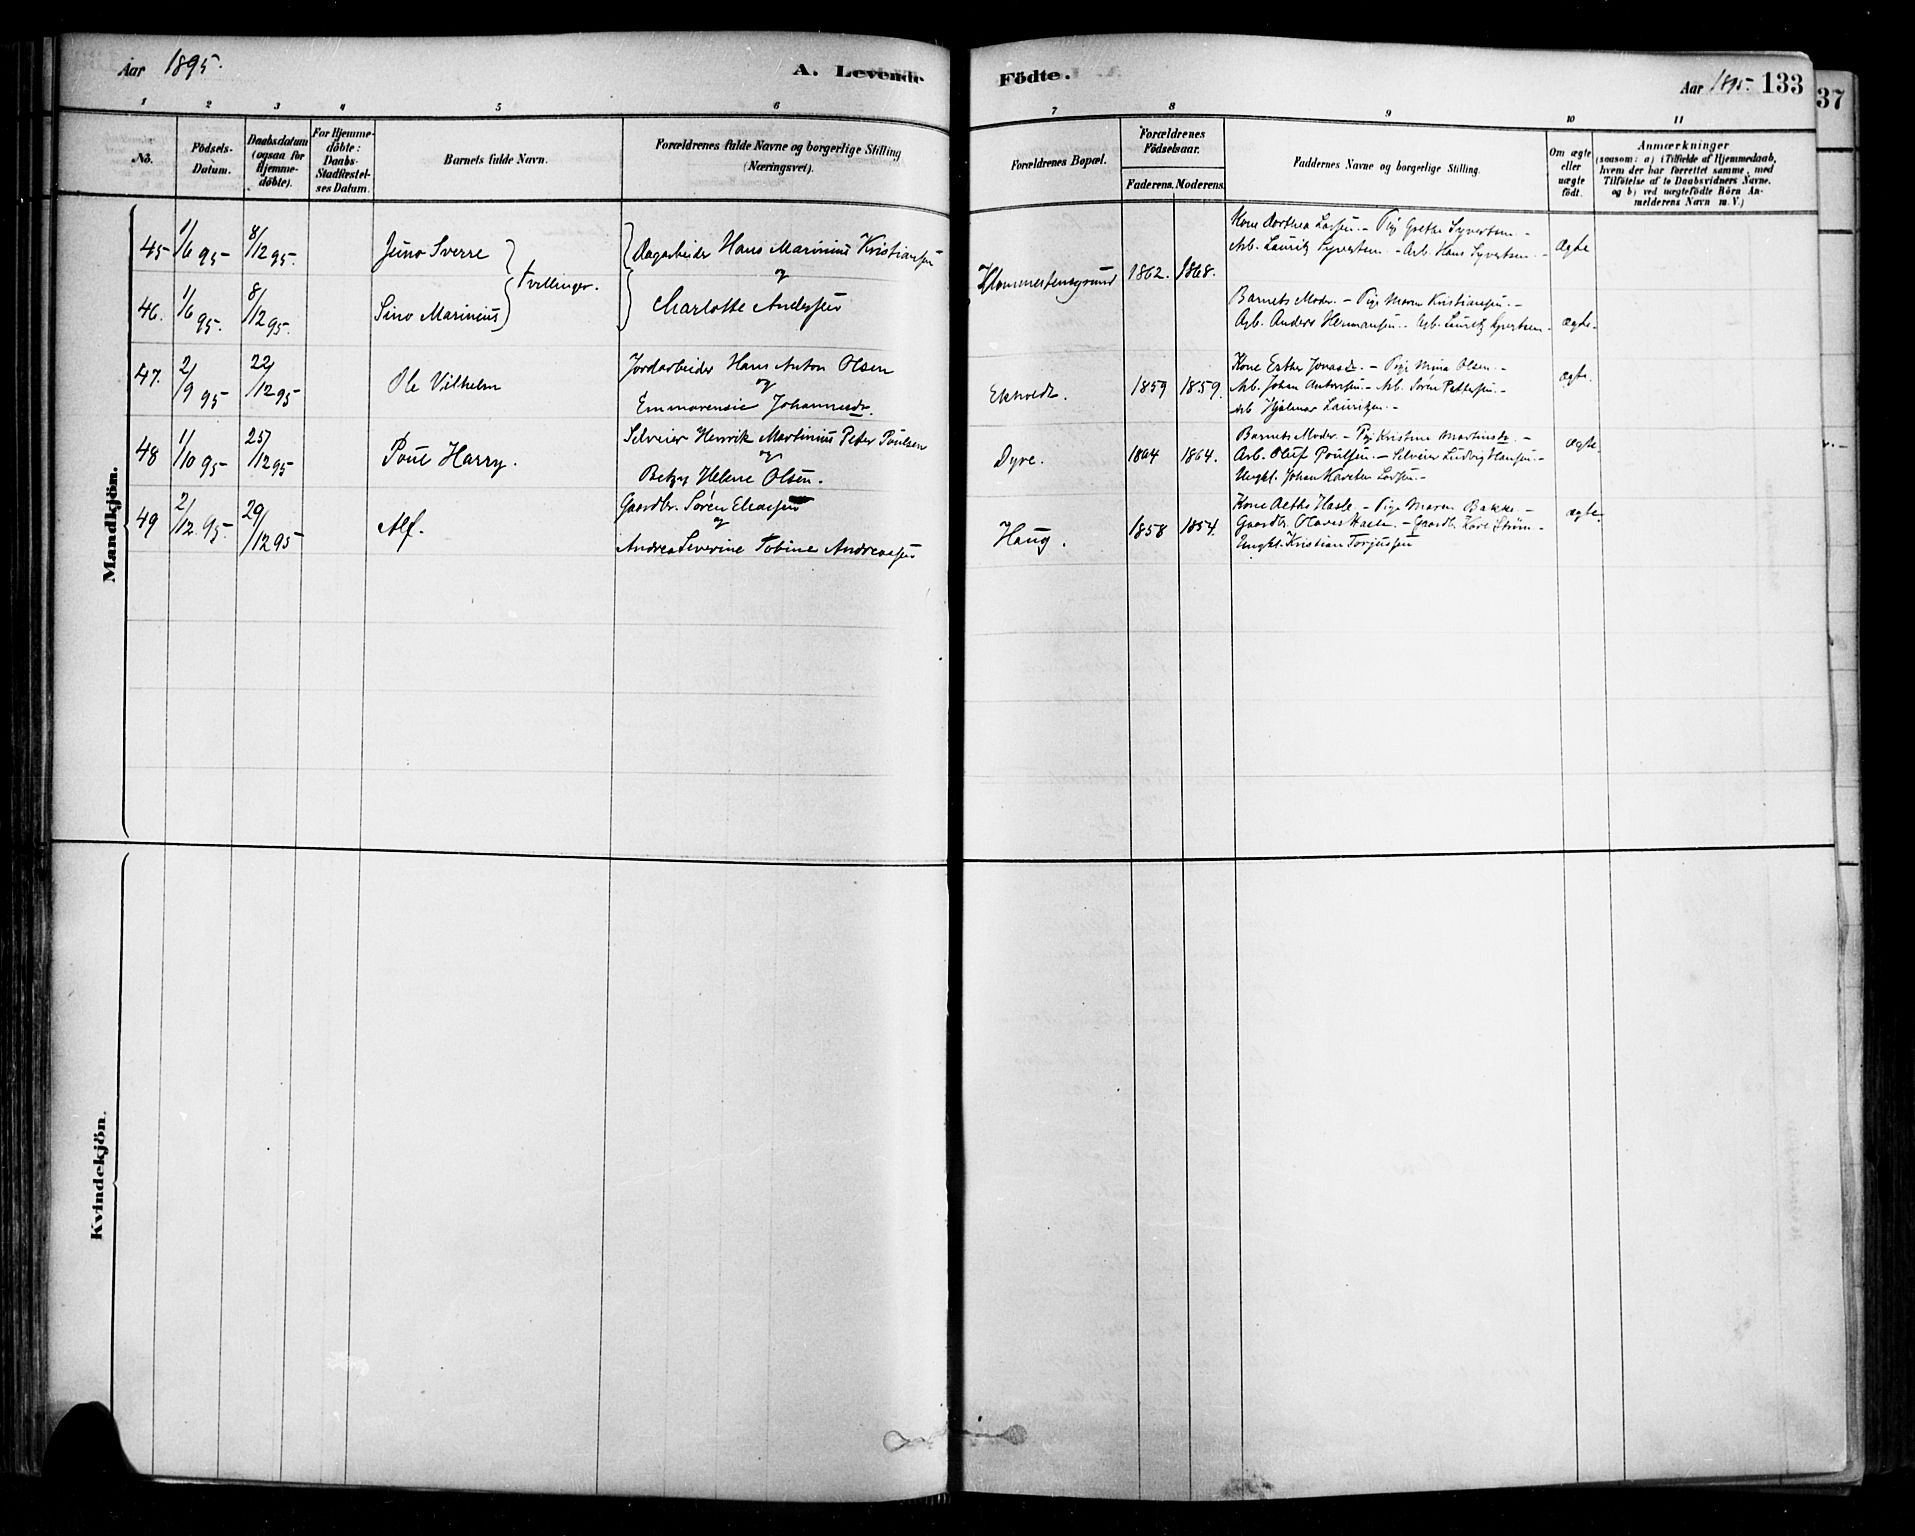 Aar 1895.
A. Levende Födte.
Aar 1895. 133
37
1 2 3 4 5 6 7 8 9 10 11
No.
Födsels-Datum.
Daabsdatum (ogsaa for Hjemme-döbte).
For Hjemme-döbte: Daabs-Stadfæstel-ses Datum.
Barnets fulde Navn.
Forældrenes fulde Navne og borgerlige Stilling (Næringsvei).
Forældrenes Bopæl.
Forældrenes Födselsaar.
Faderens. Moderens.
Faddernes Navne og borgerlige Stilling.
Om ægte eller uægte födt.
Anmærkninger
(saasom: a) i Tilfælde af Hjemmedaab,
hvem der har forrettet samme, med
Tilföielse af to Daabsvidners Navne,
og b) ved uægtefödte Börn An-
melderens Navn m. V.)
Mandkjön.
45 1/6 95 8/12 95. Juno Sverre
Tvillinger.
Dagarbeider Hans Marinius Kristiansen
og
Charlotte Andersen
1862. 1868.
Kone Dorthea Larsen - Pige Grethe Syvertsen -
Arb. Lauritz Syvertsen. - Arb. Hans Syvertsen. -
Ægte
46. 1/6 95. 8/12 95. Sino Marinius
Barnets Moder. - Pige Maren Kristiansen. -
Arb. Anders Hermansen. Arb. Lauritz Syvertsen.
Ægte.
47. 2/9 95 22/12 95 Ole Vilhelm
Jordarbeider Hans Anton Olsen
og
Johannesdr.
Ekholdt. 1859 1859.
Kone Esther Jonasdr. - Pige Mina Olsen. -
Arb. Johan Andersen - Arb. Sören Pettersen. -
Arb Hjalmar Lauritzen. -
Ægte.
48 1/10 95 25/12 95 Poul Harry.
Selveier Henrik Martinius Peter Poulsen
og
Betzy Helene Olsen.
Dyre. 1864 1864.
Barnets Moder. - Pige Kristine Martinsdr. -
Arb. Oluf Poulsen. - Selveier Ludvig Hansen. -
Ungkl. Johan Karsten Larsen. -
Ægte.
49 2/12. 95. 29/12 95 Alf.
Gaardbr. Sören Eliassen
og
Andrea Severine Tobine Andreassen
Haug. 1858 1854.
Kone Hasle - Pige Maren Bakke -
Gaardbr. Olaves Hasle. - Gaardbr. Karl Ström -
Ungkl. Kristian Torjussen
Ægte.
Kvindekjön.